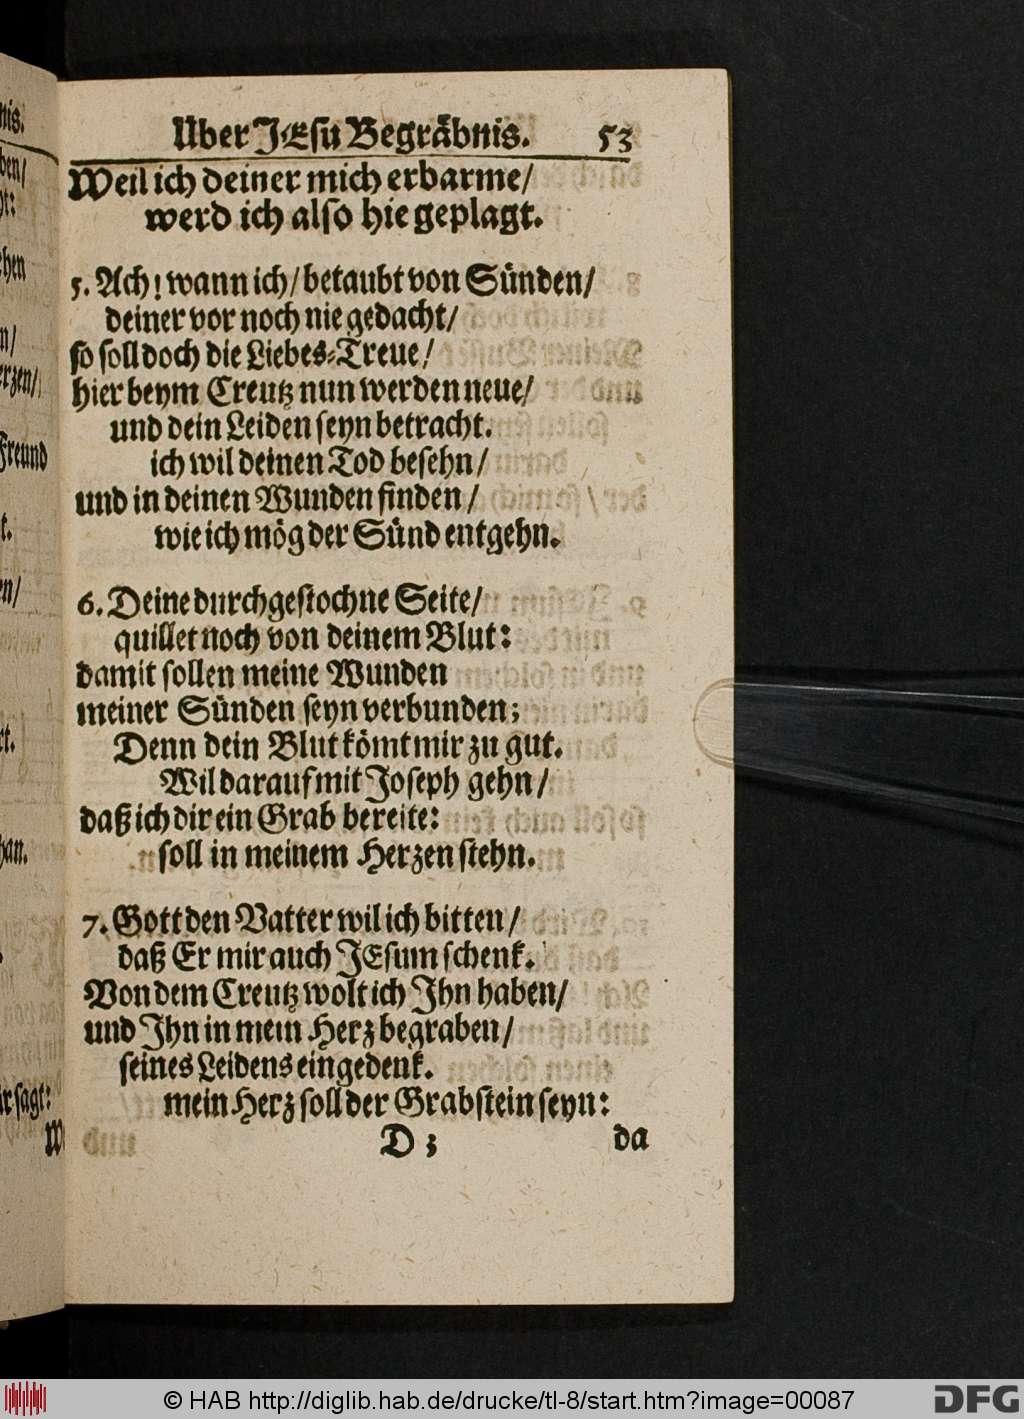 Uber JEsu Begräbnis. 53
Weil ich deiner mich erbarme/
werd ich also hie geplagt.
5. Ach! wann ich/ betaubt von Sünden/
deiner vor noch nie gedacht/
so soll doch die Liebes-Treue/
hier beym Creutz nun werden neue/
und dein Leiden seyn betracht.
ich wil deinen Tod besehn/
und in deinen Wunden finden/
wie ich mög der Sünd entgehn.
6. Deine durchgestochne Seite/
quillet noch von deinem Blut:
damit sollen meine Wunden
meiner Sünden seyn verbunden;
Denn dein Blut kömt mir zu gut.
Wil darauf mit Joseph gehn/
daß ich dir ein Grab bereite:
soll in meinem Herzen stehn.
7. Gott den Vatter wil ich bitten/
daß Er mir auch JEsum schenk.
Von dem Creutz wolt ich Jhn haben/
und Jhn in mein Herz begraben/
seines Leidens eingedenk.
mein Herz soll der Grabstein seyn:
D 3 da
© HAB http://diglib.hab.de/drucke/tl-8/start.htm?image=00087
DFG